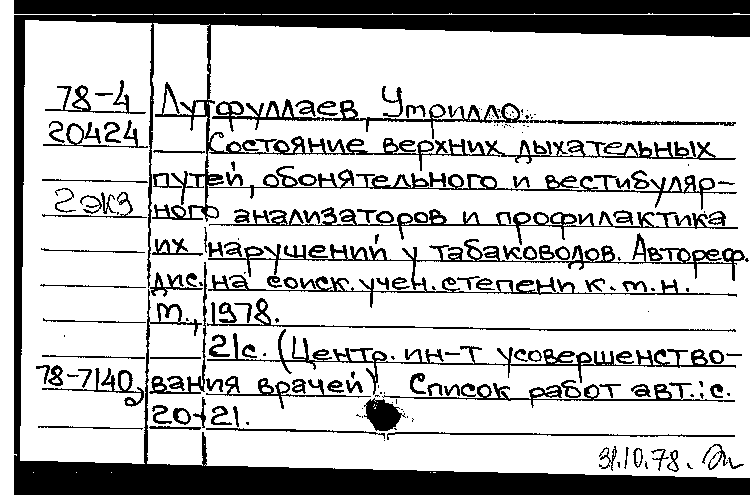 78-4 Лутфуллаев, Утрилло.
20424 Состояние верхних дыхательных
путей, обонятельного и вестибуляр-
2 экз ного анализаторов и профилактика
их нарушений у табаководов. Автореф.
дис. на соиск. учен. степени к. м. н.
Т., 1978.
21с. (Центр. ин-т усовершенство-
78-7140 вания врачей) Список работ авт.: с.
20-21.
31.10.78.